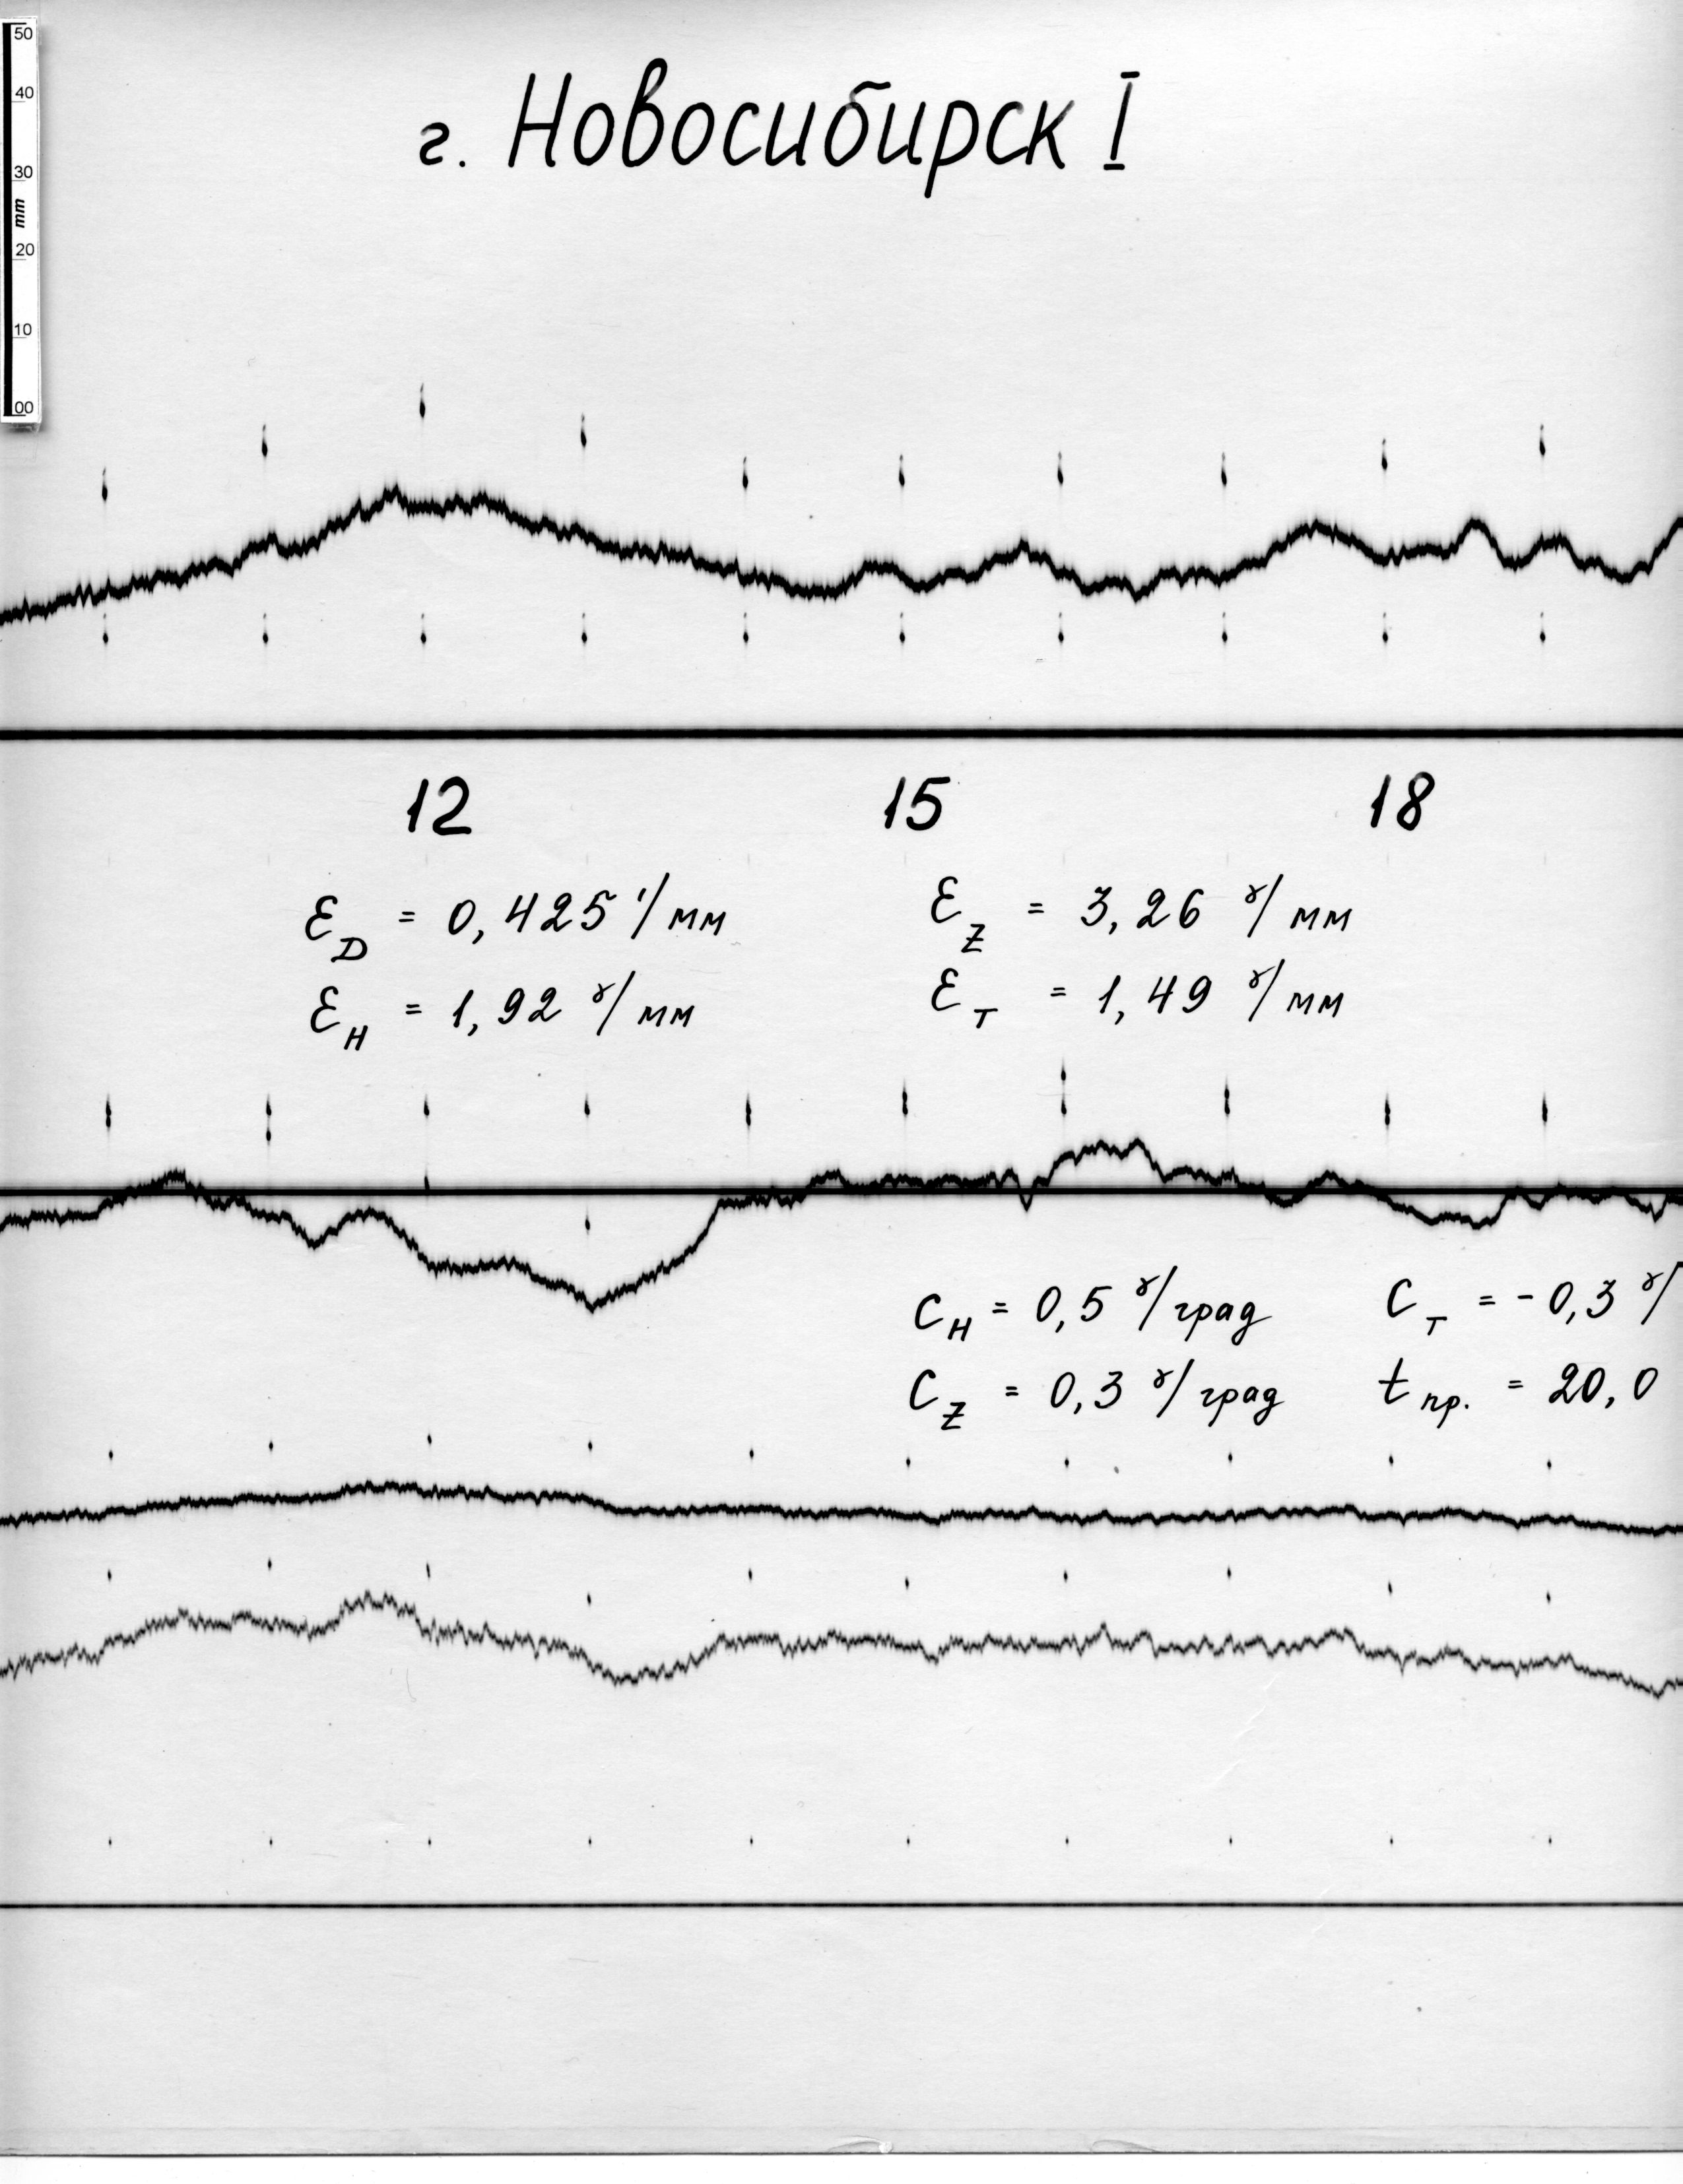 50
40
30
mm
20
10
00
г. Новосибирск I
12 15 18
ε_D = 0,425 '/мм ε_Z = 3,26 γ/мм
ε_H = 1,92 γ/мм ε_T = 1,49 γ/мм
C_H = 0,5 γ/град C_T = -0,3 γ/
C_Z = 0,3 γ/град t пр. = 20,0